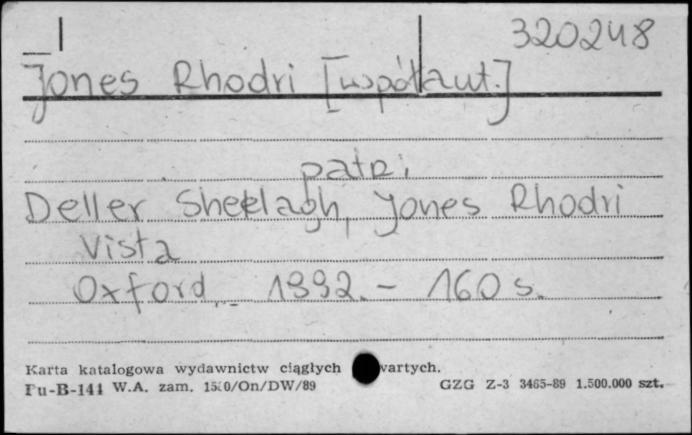 320248
Jones Rhodri [współaut.]
patrz
Deller Sheelagh, Jones Rhodri
Vista
Oxford, 1992. – 160 s.
Karta katalogowa wydawnictw ciągłych wartych.
Pu-B-141 W.A. zam. 1530/On/DW/89 GZG Z-3 3465-89 1.500.000 szt.